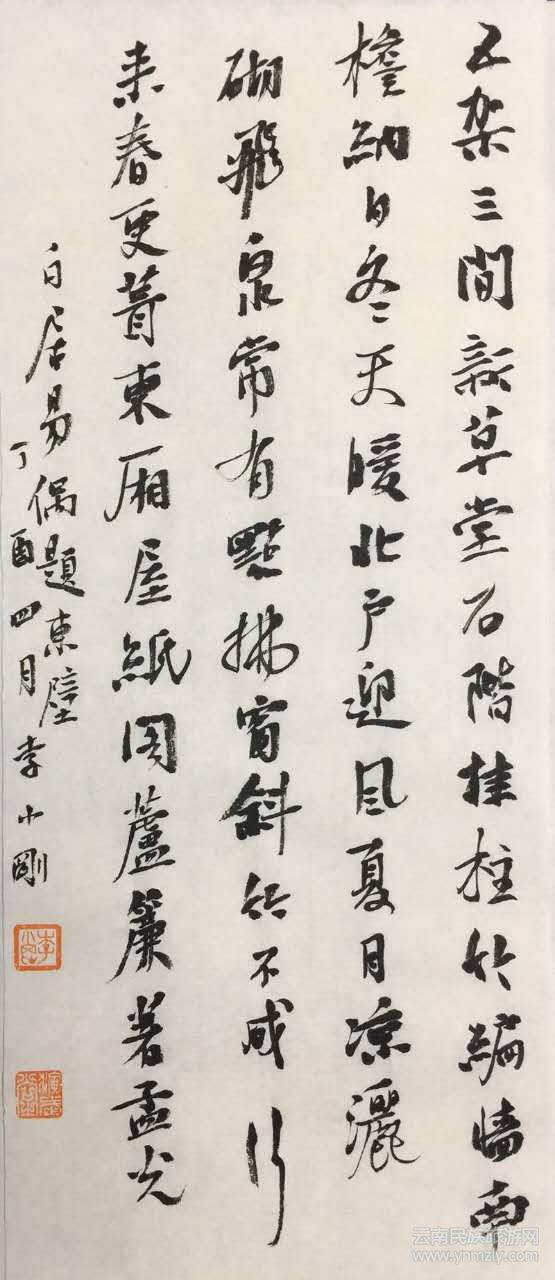 五架三間新草堂石階桂柱竹編墻南
檐納日冬天暖北户迎風夏月凉灑
砌飛泉常有點拂窗斜竹不成行
来春更葺東厢屋紙閣蘆簾著孟光
白居易偶題東壁
丁酉四月李小剛
云南民族旅游网
www.ynmzly.com